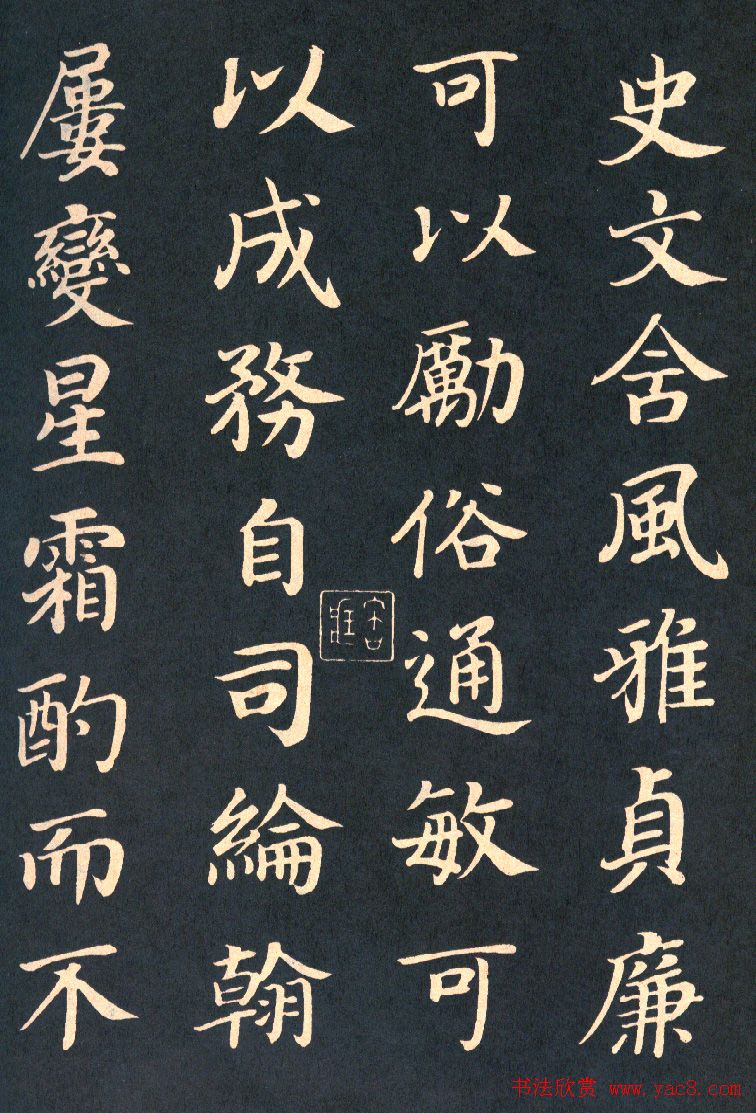 史文舍風雅貞廉
可以勵俗通敏可
以成務自司綸翰
屢變星霜酌而不
书法欣赏 www.yac8.com